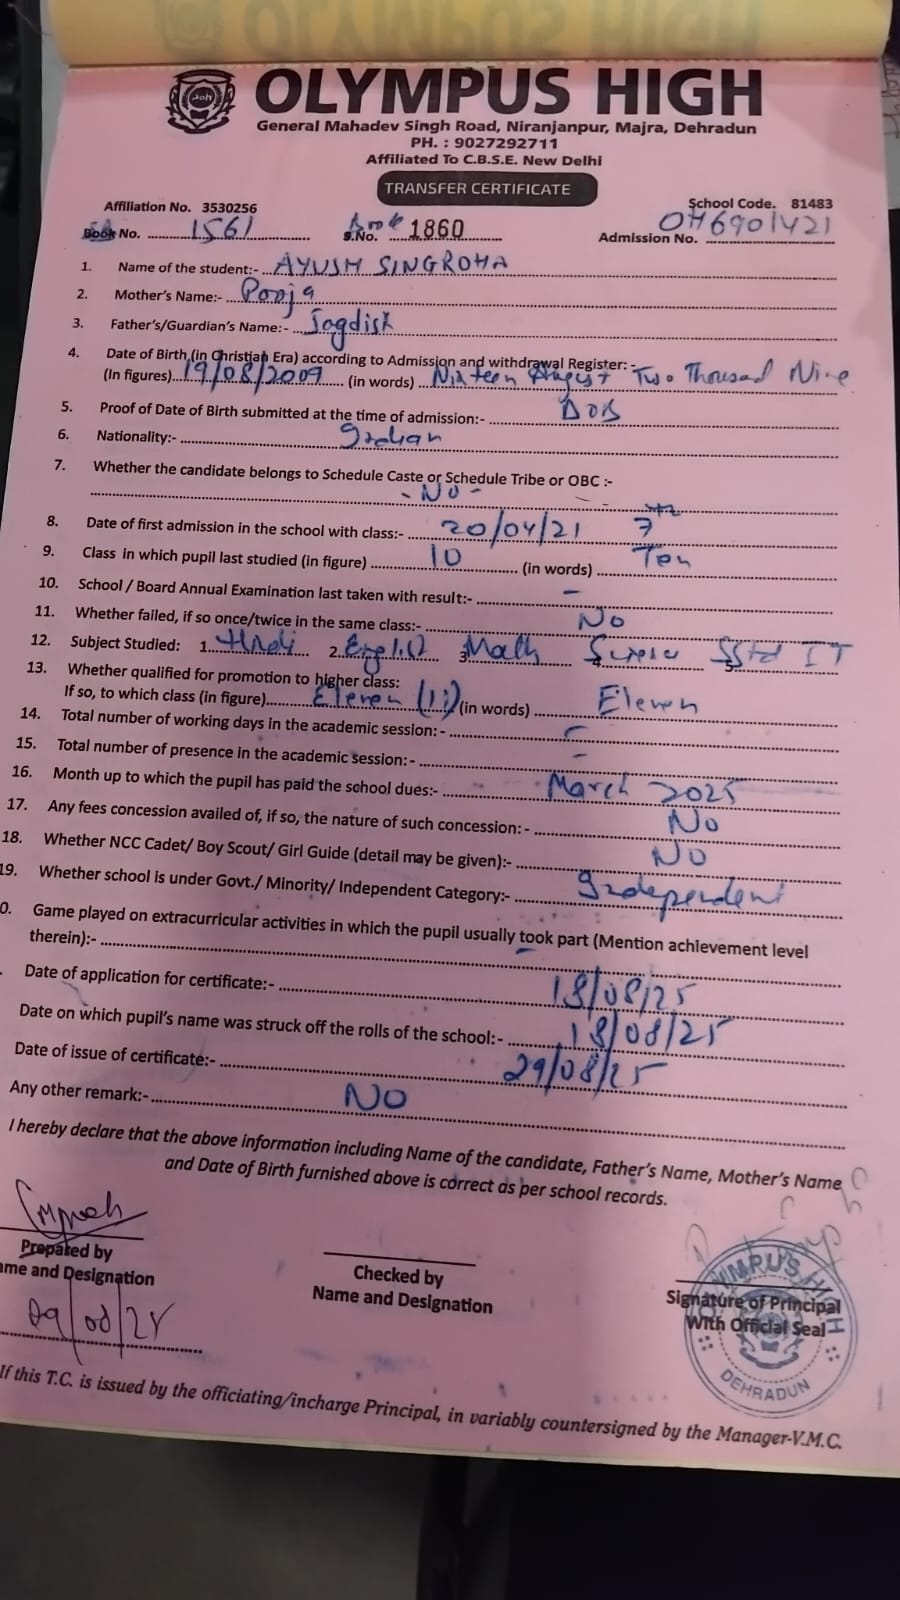 OLYMPUS HIGH
General Mahadev Singh Road, Niranjanpur, Majra, Dehradun
PH. : 9027292711
Affiliated To C.B.S.E. New Delhi
TRANSFER CERTIFICATE
Affiliation No. 3530256 School Code. 81483
Book No. 1561 Book S.No. 1860 Admission No. OH6901421
1. Name of the student:- AYUSH SINGROHA
2. Mother's Name:- Pooja
3. Father's/Guardian's Name:- Jagdish
4. Date of Birth (in Christian Era) according to Admission and withdrawal Register:-
(In figures) 19/08/2009 (in words) Nixteen August Two Thousand Nine
5. Proof of Date of Birth submitted at the time of admission:- DOB
6. Nationality:- Indian
7. Whether the candidate belongs to Schedule Caste or Schedule Tribe or OBC :-
- No -
8. Date of first admission in the school with class:- 20/04/21 7th
9. Class in which pupil last studied (in figure) 10 (in words) Ten
10. School / Board Annual Examination last taken with result:- -
11. Whether failed, if so once/twice in the same class:- No
12. Subject Studied: 1. Hindi 2. English 3. Math 4. 5. SStd IT
13. Whether qualified for promotion to higher class:
If so, to which class (in figure) Eleven (11) (in words) Eleven
14. Total number of working days in the academic session: - -
15. Total number of presence in the academic session: - -
16. Month up to which the pupil has paid the school dues:- March 2025
17. Any fees concession availed of, if so, the nature of such concession: - No
18. Whether NCC Cadet/ Boy Scout/ Girl Guide (detail may be given):- NO
19. Whether school is under Govt./ Minority/ Independent Category:- Independent
0. Game played on extracurricular activities in which the pupil usually took part (Mention achievement level
therein):-
. Date of application for certificate:- 18/08/25
Date on which pupil's name was struck off the rolls of the school:- 18/08/25
Date of issue of certificate:- 29/08/25
Any other remark:- NO
I hereby declare that the above information including Name of the candidate, Father's Name, Mother's Name
and Date of Birth furnished above is correct as per school records.
Prepated by
ame and Designation
29/08/25
Checked by
Name and Designation
Signature of Principal
With Official Seal
DEHRADUN
If this T.C. is issued by the officiating/incharge Principal, in variably countersigned by the Manager-V.M.C.